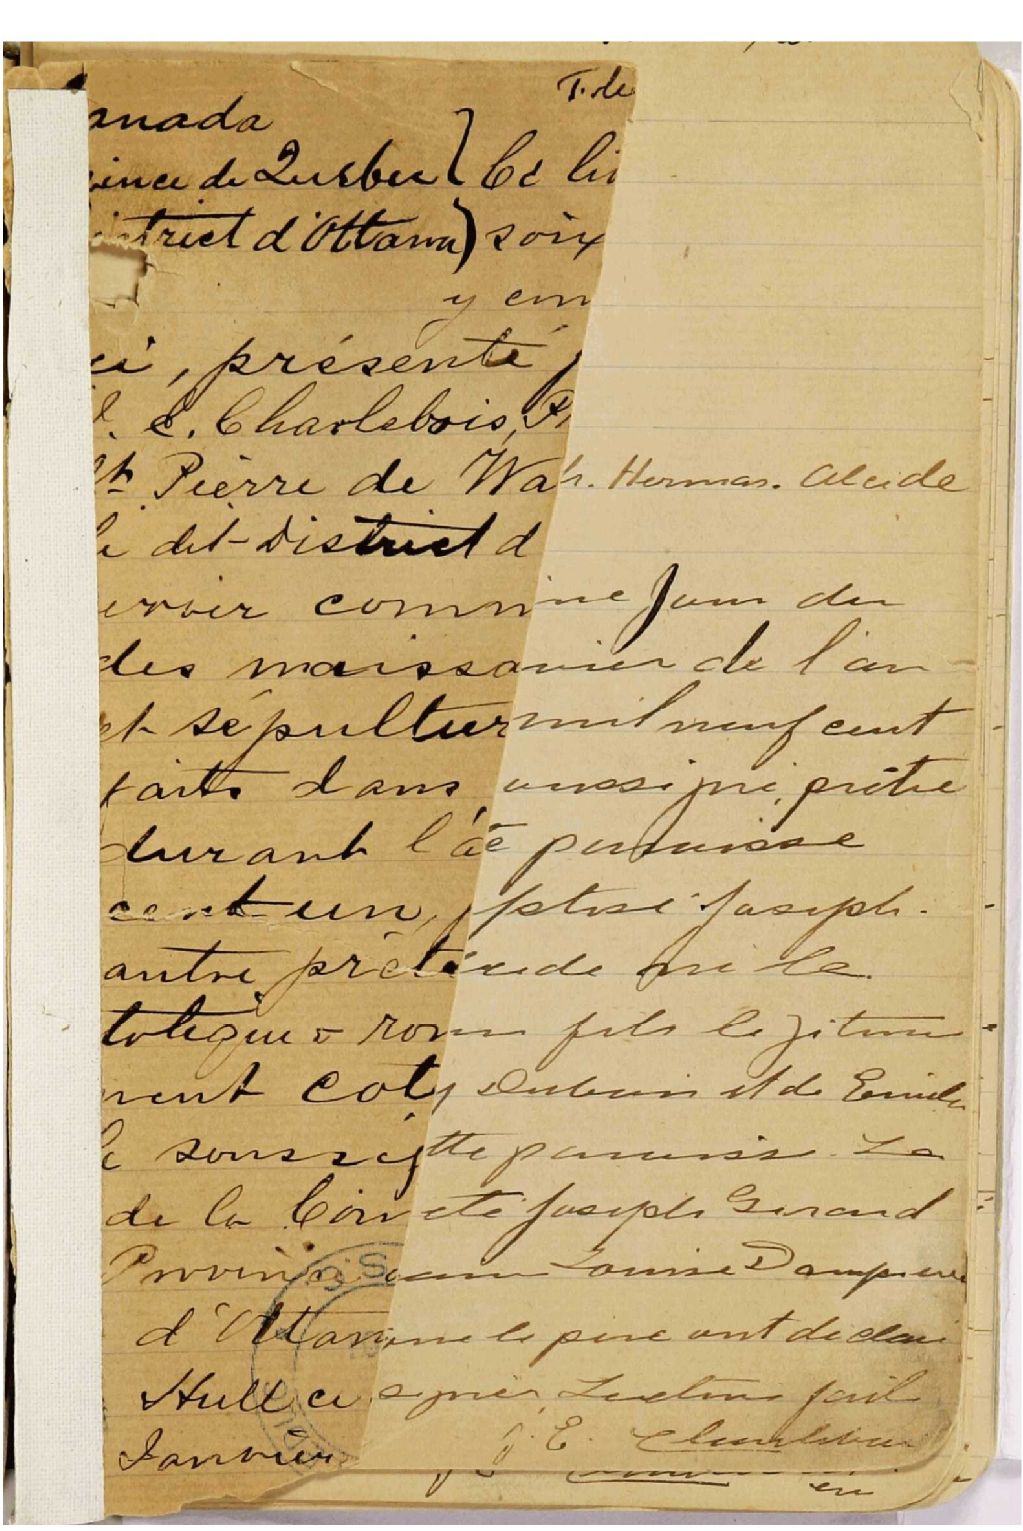 T. de
anada
ince de Quebec } Ce li
istrict d'Ottawa ) soix
y con
ci, présenté p
J. E. Charlebois, P
St Pierre de Wak. Hermas. Alcide
le dit District d
ervoir comm ine jour du
des maissa nvier de l'an
et sépultur mil neuf cent
faits dans oussigné, prêtre
durant l'a e paroisse
cent un, p ptisé Joseph.
autre prêt de né le
tolique & rom fils legitime
ment coté Dubuis et de Emilie
le soussig tte paroisse. Le
de la Com été Joseph Gerard
Province Louise Dampierre
d'Ottaw le pere ont declaré
Hull ce signer. Lecture fait
Janvier J. E. Charlebois
en